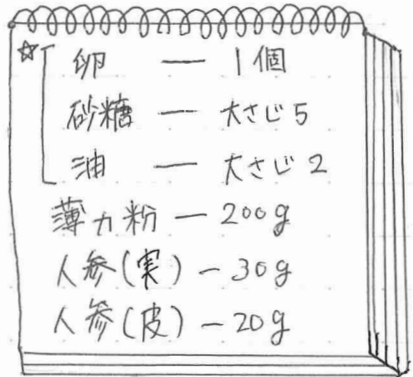 ☆ 卵 — 1個
砂糖 — 大さじ5
油 — 大さじ2
薄力粉 — 200g
人参(実) — 30g
人参(皮) — 20g